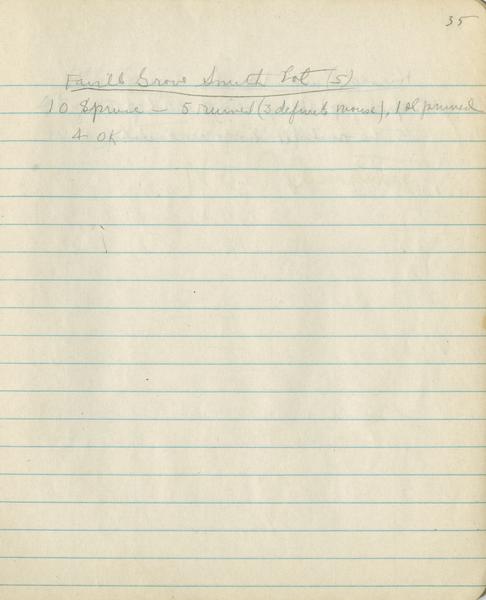 35
Faville Grove Smith Lot (5)
10 Spruce — 5 ruined (3 definite mouse), 1 pruned
4 OK